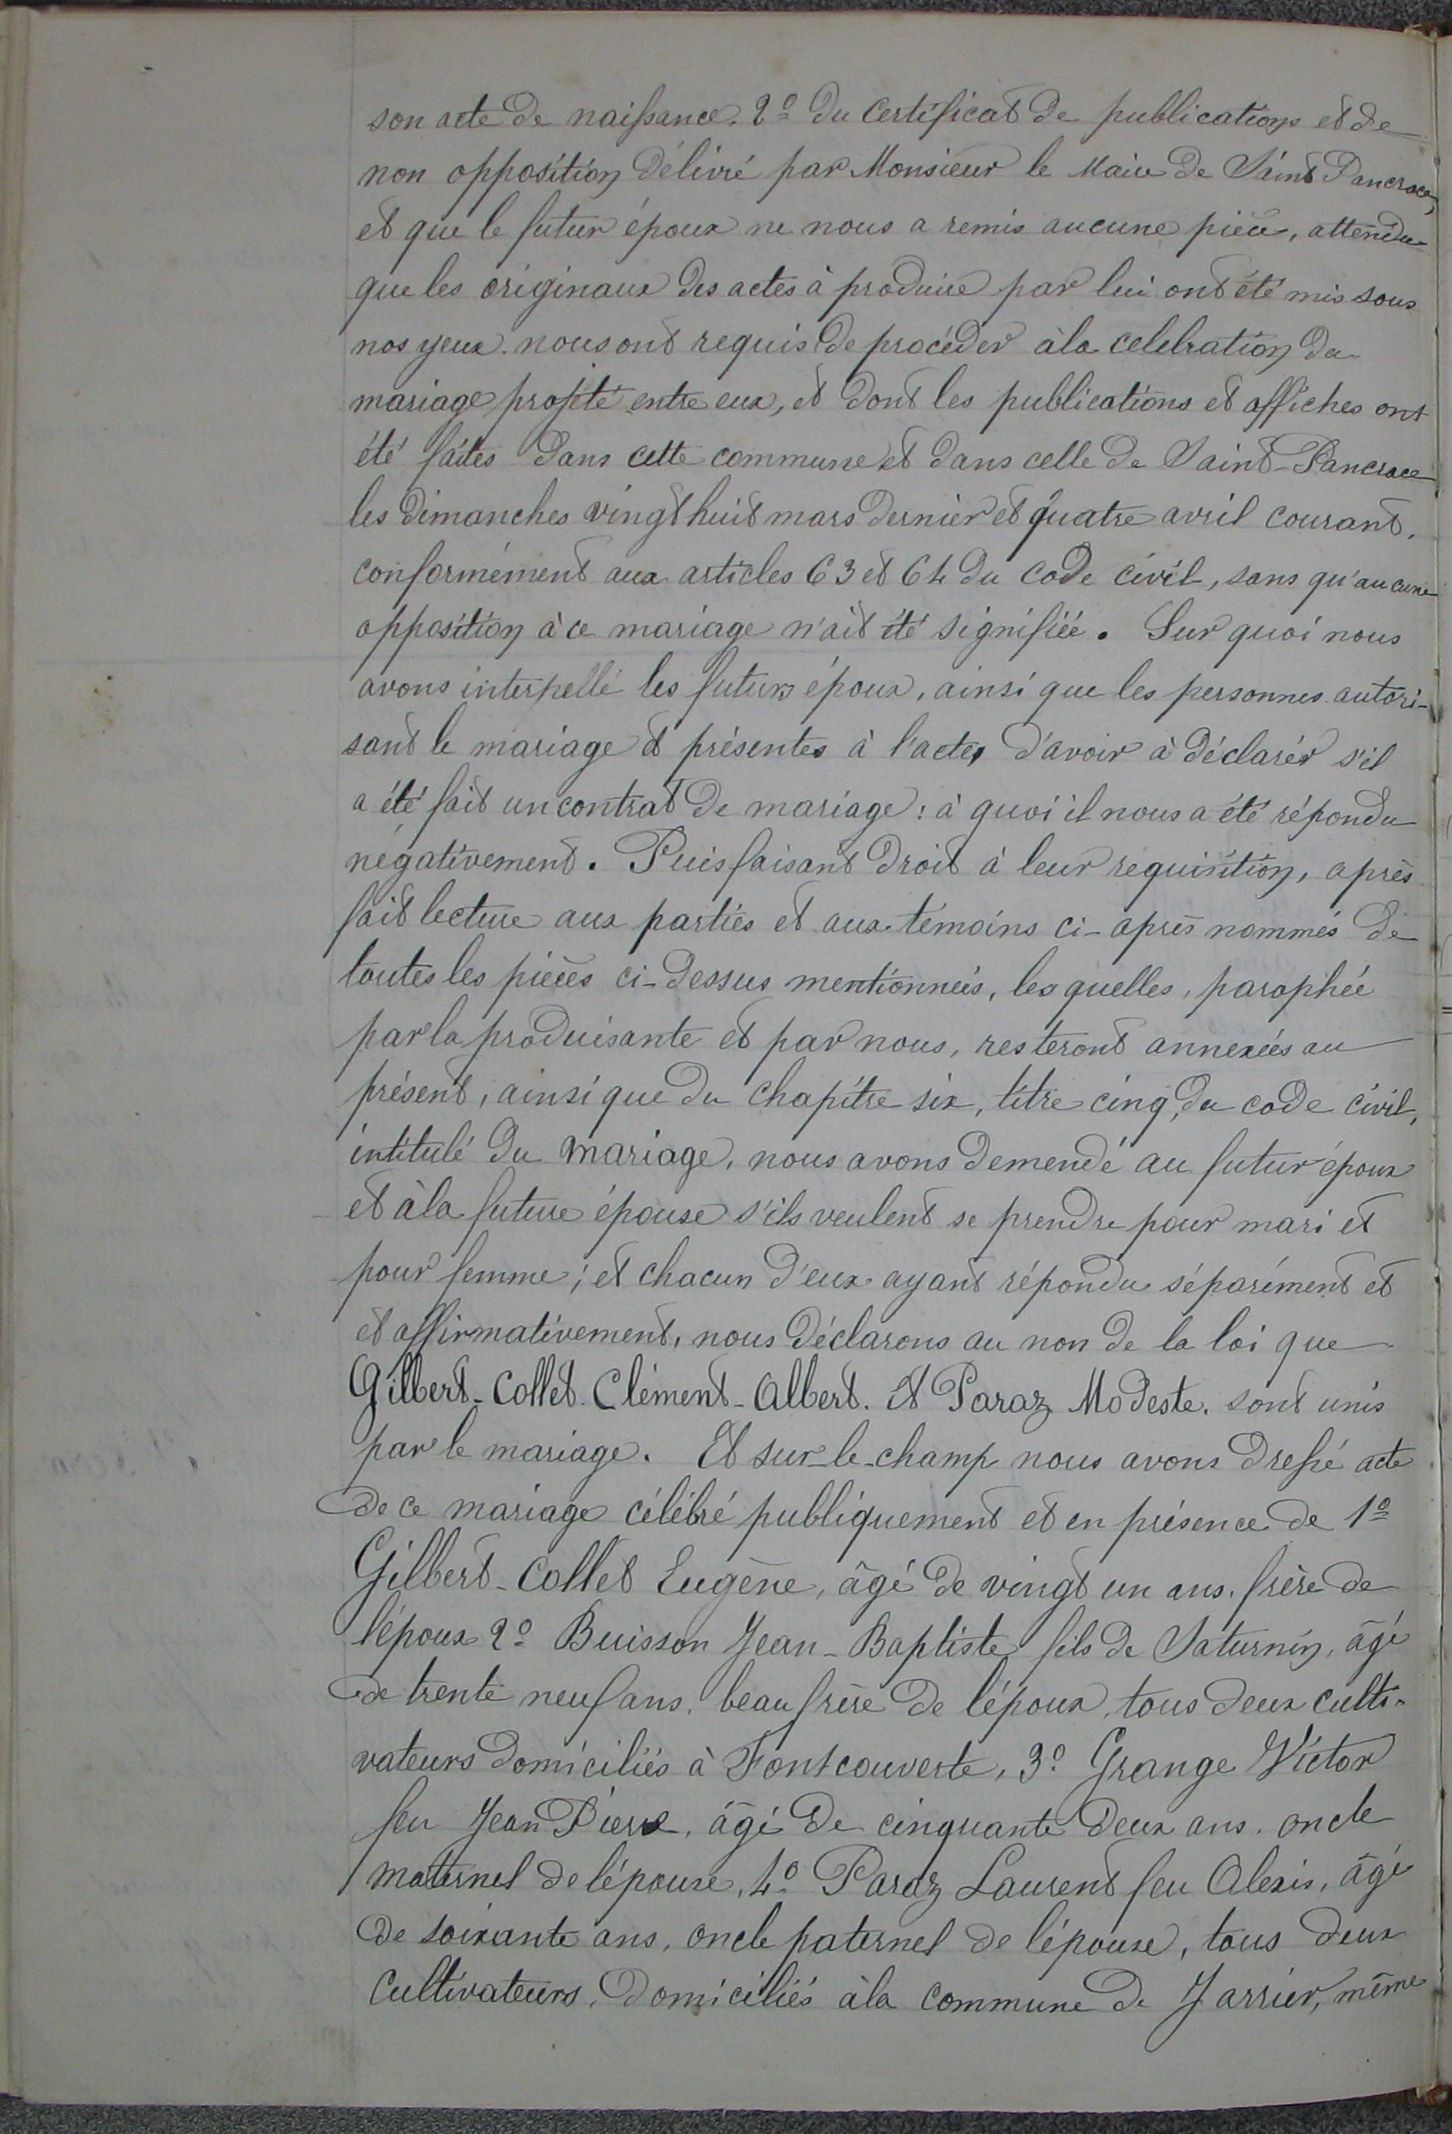 son acte de naissance. 2º du Certificat de publications et de
non opposition délivré par Monsieur le Maire de Saint Pancrace,
et que le futur époux ne nous a remis aucune pièce, attendu
que les originaux des actes à produire par lui ont été mis sous
nos yeux. nous ont requis de procéder à la celebration du
mariage projeté entre eux, et dont les publications et affiches ont
été faites dans cette commune et dans celle de Saint-Pancrace
les dimanches vingt huit mars dernier et quatre avril courant,
conformément aux articles 63 et 64 du code civil, sans qu'aucune
opposition à ce mariage n'ait été signifiée. Sur quoi nous
avons interpellé les futurs époux, ainsi que les personnes autori-
sant le mariage et présentes à l'acte, d'avoir à déclarer s'il
a été fait un contrat de mariage : à quoi il nous a été répondu
négativement. Puis faisant droit à leur requisition, après
fait lecture aux parties et aux témoins ci-après nommés de
toutes les pièces ci-dessus mentionnées, les quelles, paraphée
par la produisante et par nous, resteront annexées au
présent, ainsi que du chapitre six, titre cinq, du code civil,
intitulé du Mariage, nous avons demendé au futur époux
et à la future épouse s'ils veulent se prendre pour mari et
pour femme ; et chacun d'eux ayant répondu séparément et
et affirmativement, nous déclarons au non de la loi que
Gilbert-Collet Clément-Albert. Et Paraz Modeste. sont unis
par le mariage. Et sur-le-champ nous avons dressé acte
de ce mariage célébré publiquement et en présence de 1º
Gilbert-Collet Eugène, âgé de vingt un ans. frère de
l'époux 2º Buisson Jean-Baptiste fils de Saturnin, âgé
de trente neuf ans, beau frère de l'époux, tous deux culti-
vateurs domiciliés à Fontcouverte, 3º Grange Victor
feu Jean Pierre, âgé de cinquante deux ans. oncle
maternel de l'épouse, 4º Paraz Laurent feu Alexis, âgé
de soixante ans, oncle paternel de l'épouse, tous deux
Cultivateurs, domiciliés à la commune de Jarrier, même